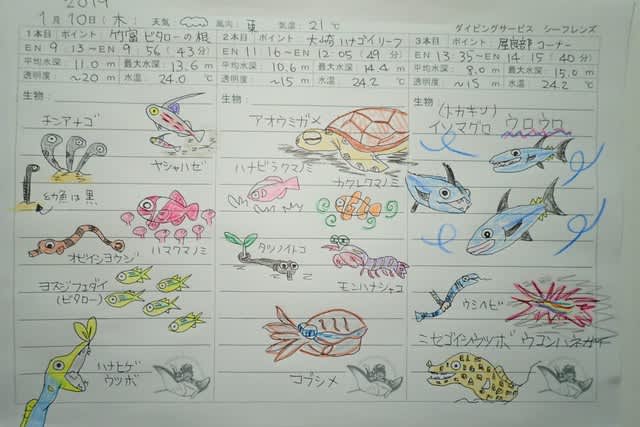 2019
1月10日(木) 天気: 風向: 東 気温: 21℃
ダイビングサービス シーフレンズ
1本目 ポイント: 竹富 ビタローの根
EN 9:13 ~EN 9:56 (43分)
平均水深 11.0 m 最大水深 13.6 m
透明度 ~20 m 水温 24.0 ℃
生物:
チンアナゴ
ヤシャハゼ
幼魚は黒
ハマクマノミ
オビイシヨウジ
ヨスジフエダイ
(ビタロー)
ハナヒゲ
ウツボ
2本目 ポイント: 大崎 ハナゴイリーフ
EN 11:16 ~EN 12:05 (49分)
平均水深 10.6 m 最大水深 14.4 m
透明度 ~15 m 水温 24.2 ℃
生物:
アオウミガメ
ハナビラクマノミ
カクレクマノミ
タツノイトコ
モンハナシャコ
コブシメ
3本目 ポイント: 屋良部 コーナー
EN 13:35 ~EN 14:15 (40分)
平均水深 8.0 m 最大水深 15.0 m
透明度 ~15 m 水温 24.2 ℃
生物:
(トカキン)
イソマグロ ウロウロ
ウミヘビ
ニセゴイシウツボ ウコンハネガイ